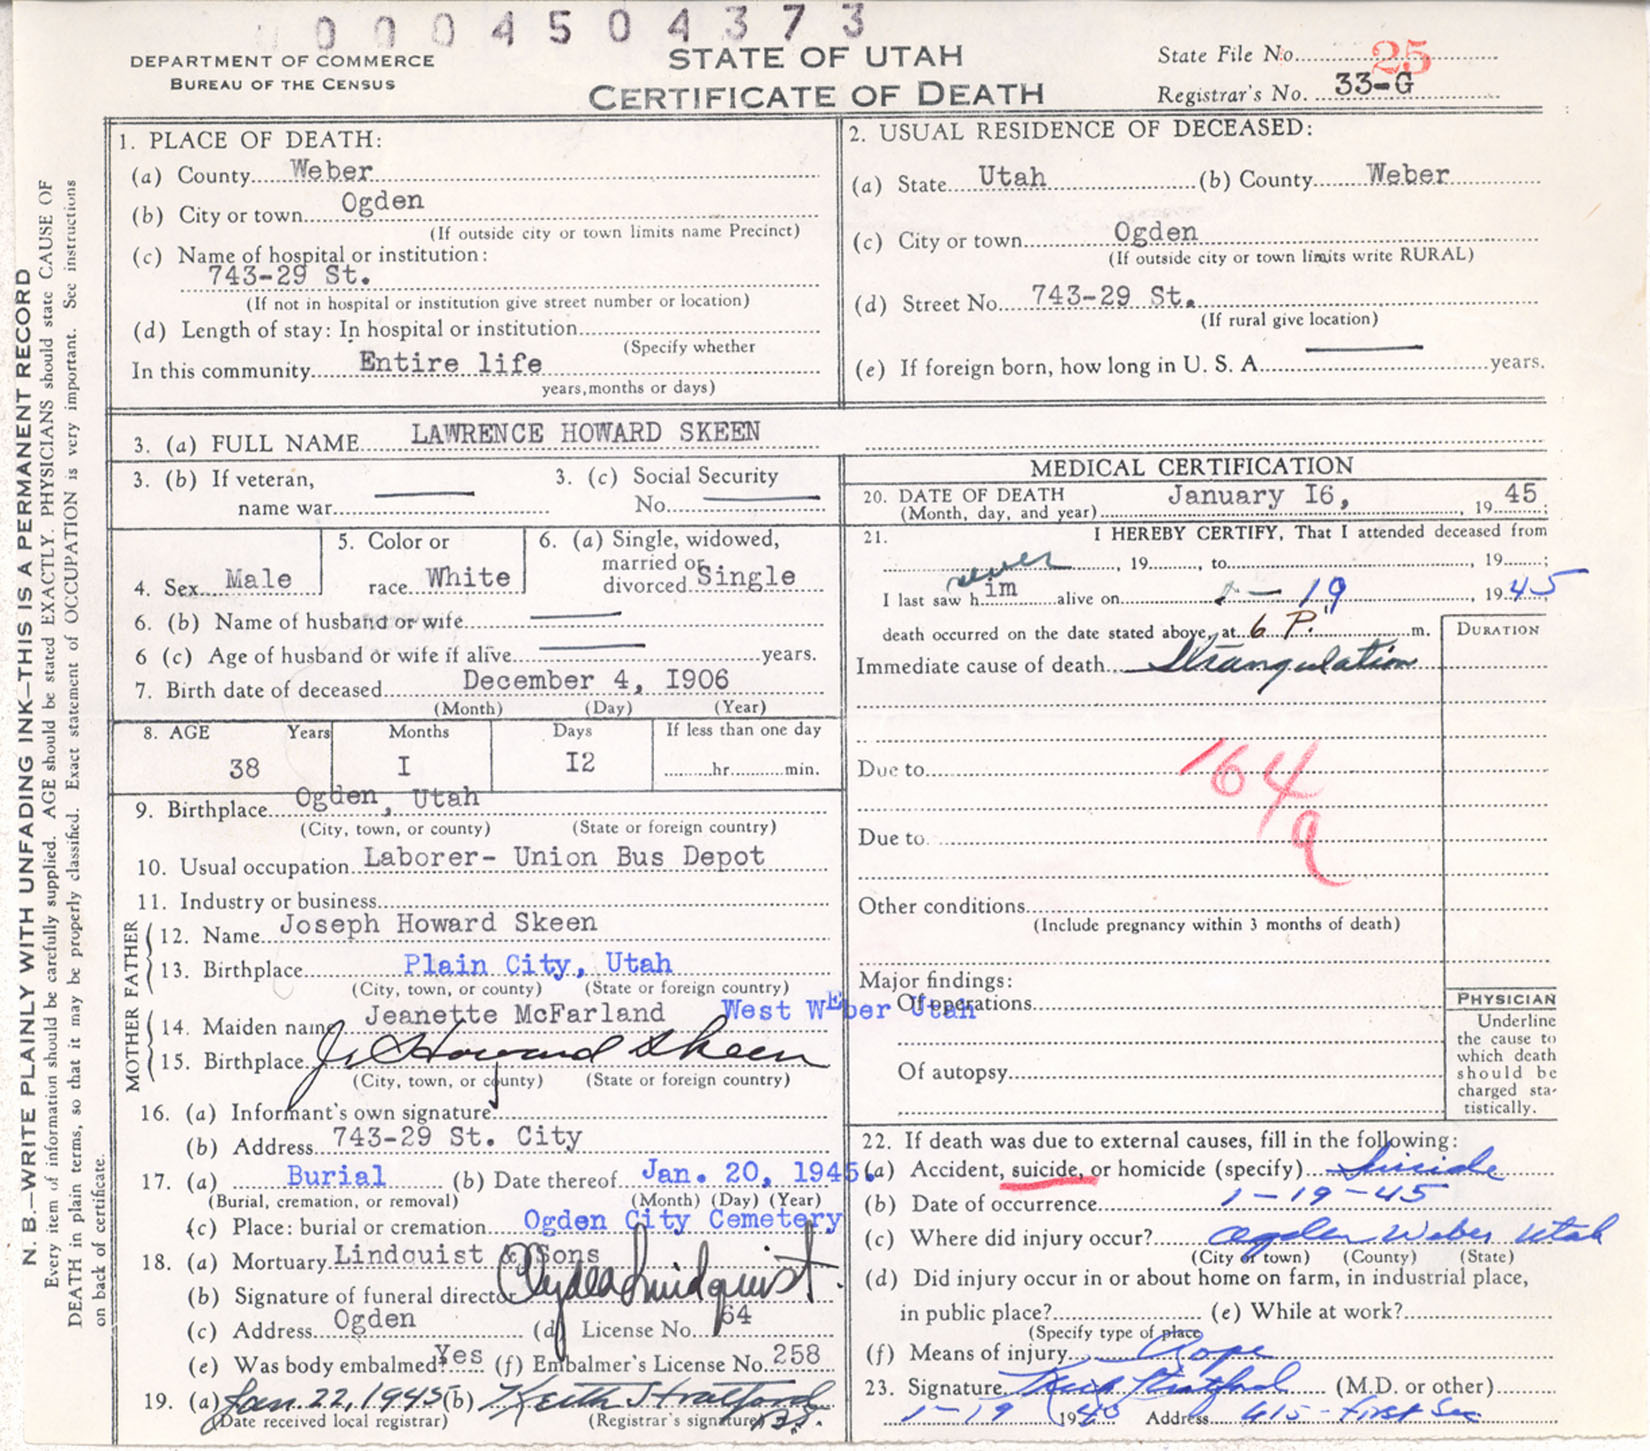 0004504373
DEPARTMENT OF COMMERCE
BUREAU OF THE CENSUS
STATE OF UTAH
CERTIFICATE OF DEATH
State File No. 25
Registrar's No. 33-G
N. B.—WRITE PLAINLY WITH UNFADING INK—THIS IS A PERMANENT RECORD
Every item of information should be carefully supplied. AGE should be stated EXACTLY. PHYSICIANS should state CAUSE OF
DEATH in plain terms, so that it may be properly classified. Exact statement of OCCUPATION is very important. See instructions
on back of certificate.
1. PLACE OF DEATH:
(a) County Weber
(b) City or town Ogden
(If outside city or town limits name Precinct)
(c) Name of hospital or institution:
743-29 St.
(If not in hospital or institution give street number or location)
(d) Length of stay: In hospital or institution
(Specify whether
In this community Entire life
years, months or days)
2. USUAL RESIDENCE OF DECEASED:
(a) State Utah (b) County Weber
(c) City or town Ogden
(If outside city or town limits write RURAL)
(d) Street No. 743-29 St.
(If rural give location)
(e) If foreign born, how long in U. S. A. years.
3. (a) FULL NAME LAWRENCE HOWARD SKEEN
3. (b) If veteran,
name war
3. (c) Social Security
No.
4. Sex Male
5. Color or
race White
6. (a) Single, widowed,
married or
divorced Single
6. (b) Name of husband or wife
6 (c) Age of husband or wife if alive years.
7. Birth date of deceased December 4, I906
(Month) (Day) (Year)
8. AGE Years Months Days If less than one day
38 I I2 hr. min.
9. Birthplace Ogden, Utah
(City, town, or county) (State or foreign country)
10. Usual occupation Laborer- Union Bus Depot
11. Industry or business
FATHER
12. Name Joseph Howard Skeen
13. Birthplace Plain City, Utah
(City, town, or county) (State or foreign country)
MOTHER
14. Maiden name Jeanette McFarland West WEber Utah
15. Birthplace
(City, town, or county) (State or foreign country)
J. Howard Skeen
16. (a) Informant's own signature
(b) Address 743-29 St. City
17. (a) Burial (b) Date thereof Jan. 20, 1945.
(Burial, cremation, or removal) (Month) (Day) (Year)
(c) Place: burial or cremation Ogden City Cemetery
18. (a) Mortuary Lindquist & Sons
(b) Signature of funeral director Clyde Lindquist
(c) Address Ogden (d) License No. 64
(e) Was body embalmed? Yes (f) Embalmer's License No. 258
19. (a) Jan. 22, 1945 (b) Keith Stratford
(Date received local registrar) (Registrar's signature)
MEDICAL CERTIFICATION
20. DATE OF DEATH January I6, 1945;
(Month, day, and year)
21. I HEREBY CERTIFY, That I attended deceased from
never, 19, to, 19;
I last saw him alive on 1-19, 1945;
death occurred on the date stated above, at 6 P. m.
DURATION
Immediate cause of death Strangulation
Due to
164
a
Due to
Other conditions
(Include pregnancy within 3 months of death)
Major findings:
Of operations
Of autopsy
PHYSICIAN
Underline
the cause to
which death
should be
charged sta-
tistically.
22. If death was due to external causes, fill in the following:
(a) Accident, suicide, or homicide (specify) Suicide
(b) Date of occurrence 1-19-45
(c) Where did injury occur? Ogden Weber Utah
(City or town) (County) (State)
(d) Did injury occur in or about home on farm, in industrial place,
in public place? (e) While at work?
(Specify type of place
(f) Means of injury Rope
23. Signature Keith Stratford (M.D. or other)
1-19 19 Address 615-First Sec